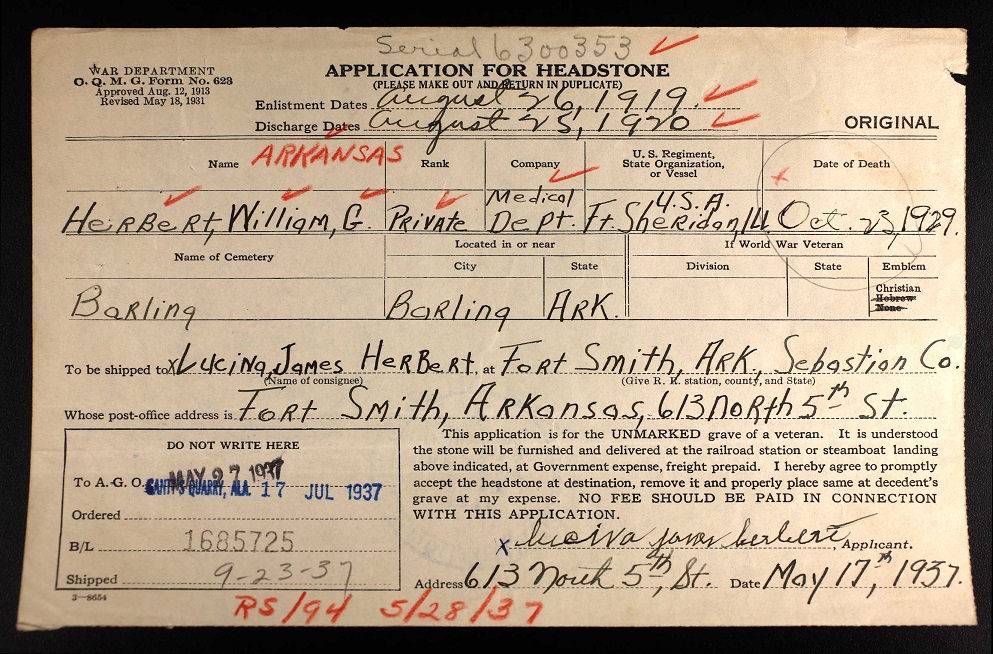 Serial 6300353
WAR DEPARTMENT
O. Q. M. G. Form No. 623
Approved Aug. 12, 1913
Revised May 18, 1931
APPLICATION FOR HEADSTONE
(PLEASE MAKE OUT AND RETURN IN DUPLICATE)
Enlistment Dates August 26, 1919.
Discharge Dates August 25, 1920
ORIGINAL
Name ARKANSAS Rank Company U. S. Regiment, State Organization, or Vessel Date of Death
Herbert, William, G. Private Medical Dept. U.S.A. Ft. Sheridan, Ill. Oct. 23, 1929.
Name of Cemetery Located in or near If World War Veteran
City State Division State Emblem
Barling Barling Ark. Christian
Hebrew
None
To be shipped to x Lucina, James Herbert, at Fort Smith, Ark., Sebastian Co.
(Name of consignee) (Give R. R. station, county, and State)
Whose post-office address is Fort Smith, Arkansas, 613 North 5th St.
DO NOT WRITE HERE
To A. G. O. MAY 27 1937
GANTT'S QUARRY, ALA. 17 JUL 1937
Ordered
B/L 1685725
Shipped 9-23-37
3—8654
This application is for the UNMARKED grave of a veteran. It is understood
the stone will be furnished and delivered at the railroad station or steamboat landing
above indicated, at Government expense, freight prepaid. I hereby agree to promptly
accept the headstone at destination, remove it and properly place same at decedent's
grave at my expense. NO FEE SHOULD BE PAID IN CONNECTION
WITH THIS APPLICATION.
x Herbert, Applicant.
Address 613 North 5th, St. Date May 17th, 1937.
RS/94 5/28/37